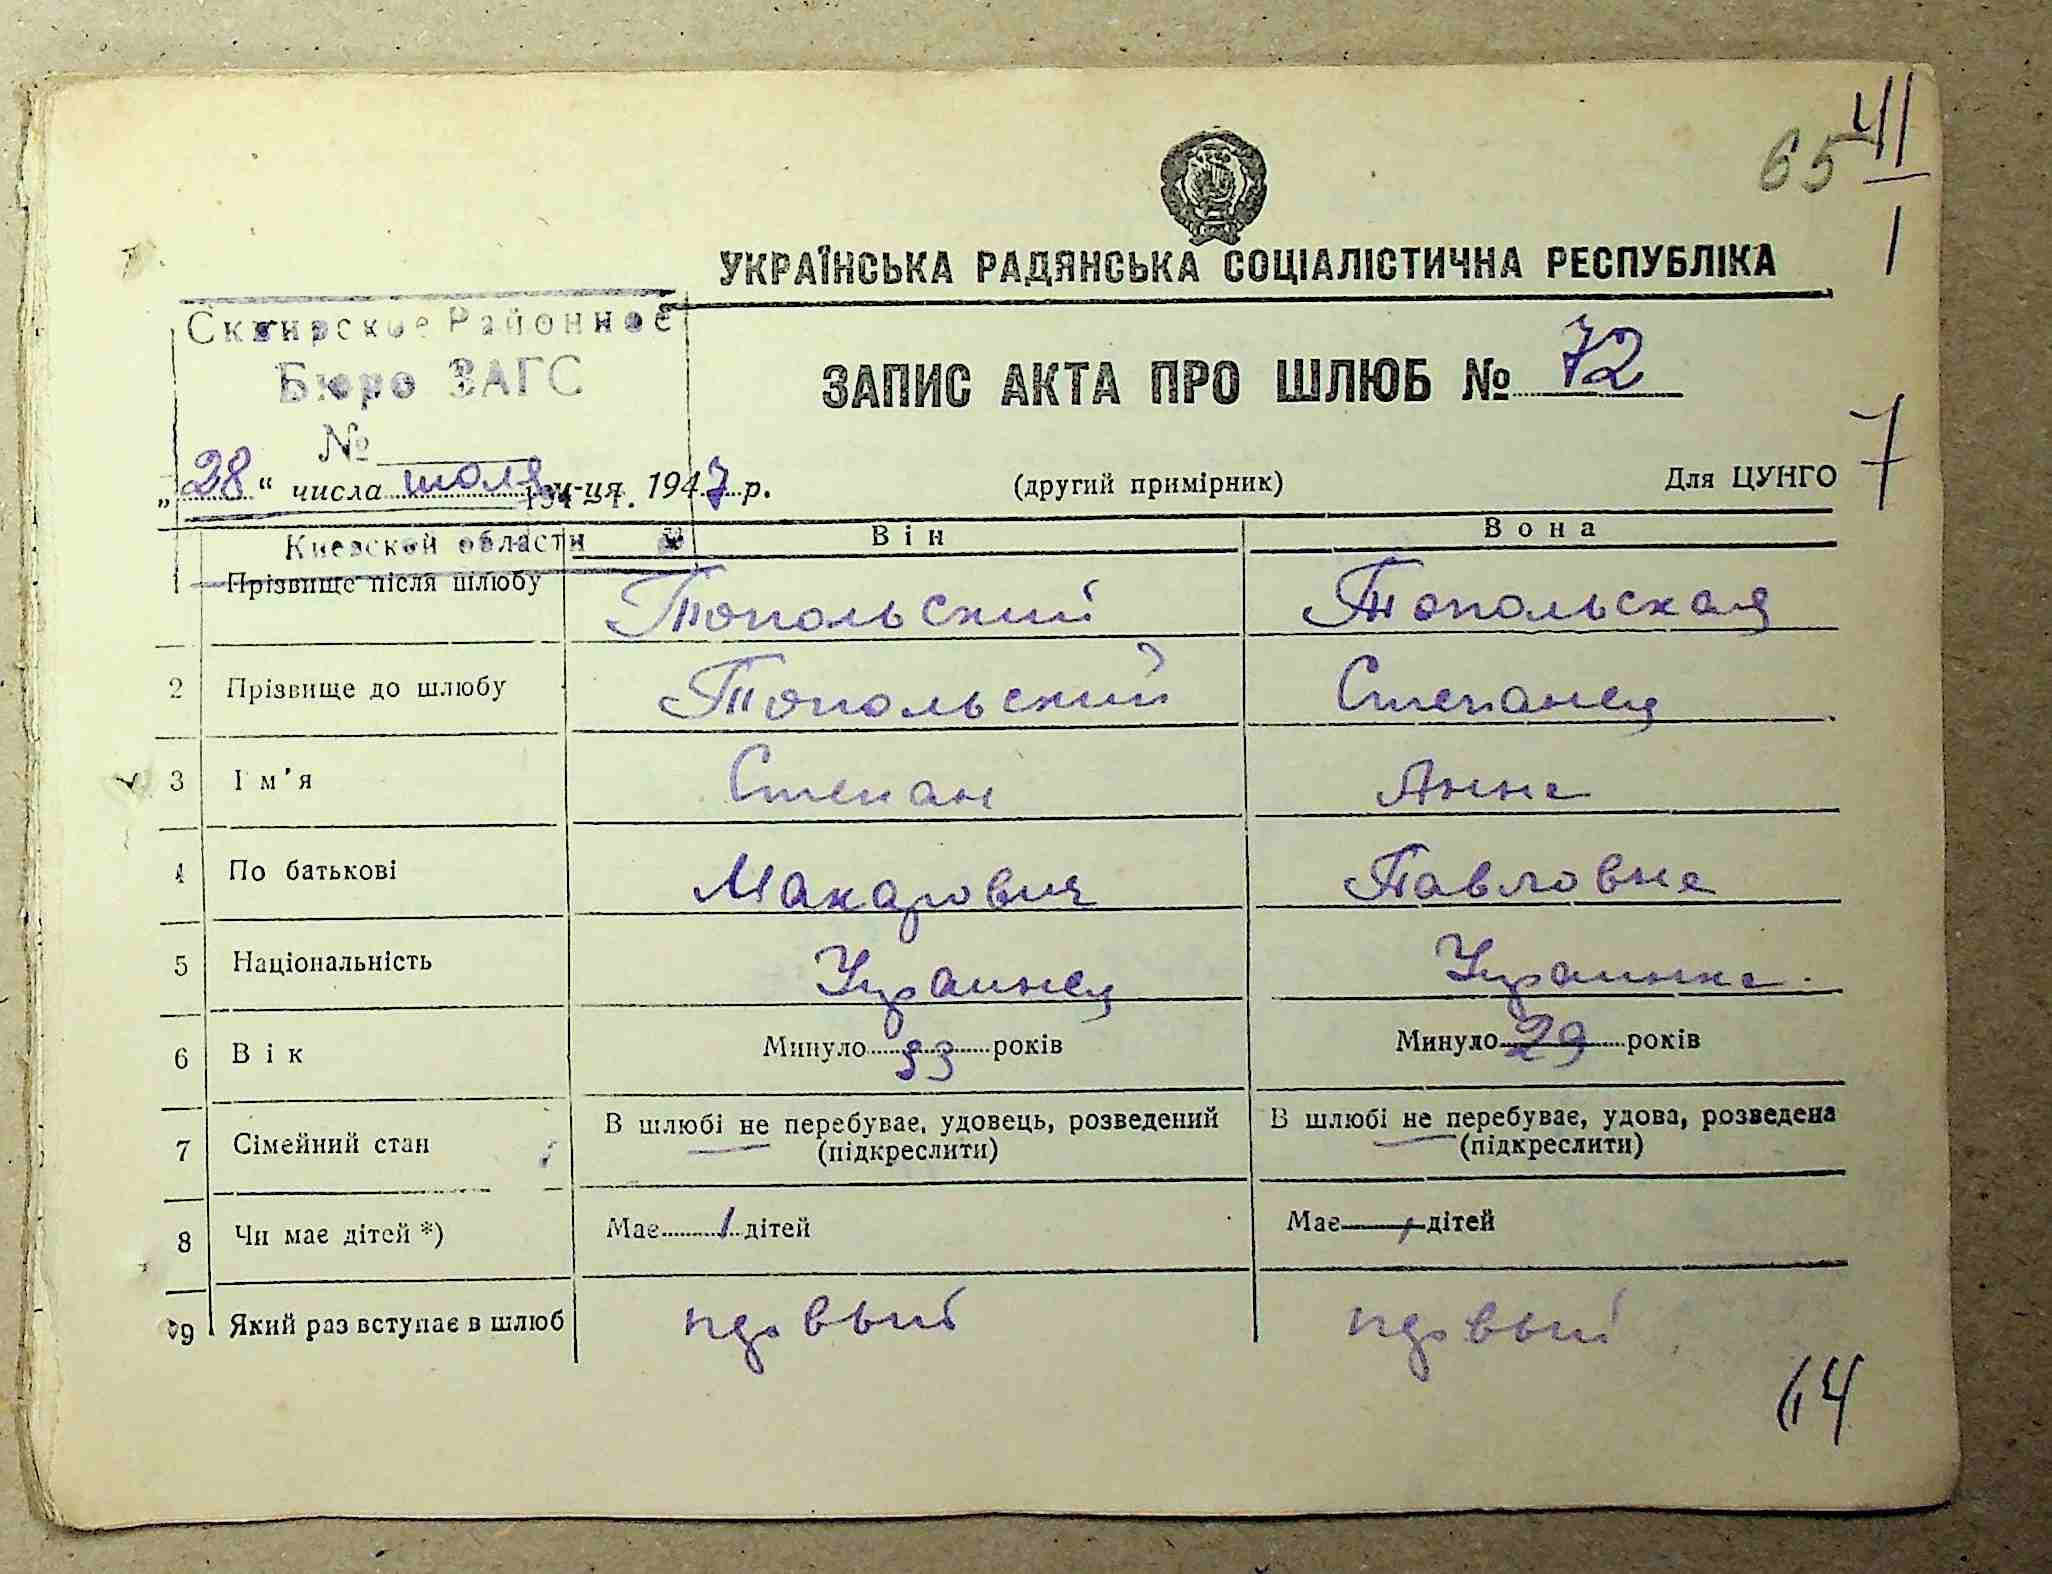 41
65
1
УКРАЇНСЬКА РАДЯНСЬКА СОЦІАЛІСТИЧНА РЕСПУБЛІКА
Сквирское Районное
Бюро ЗАГС
№
ЗАПИС АКТА ПРО ШЛЮБ № 72
7
„28“ числа июля м-ця 1947 р.
(другий примірник)
Для ЦУНГО
194 г.
Киевской области
Він
Вона
1 Прізвище після шлюбу Топольский Топольская
2 Прізвище до шлюбу Топольский Степанец
3 Ім'я Степан Анна
4 По батькові Макарович Павловна
5 Національність Украинец Украинка.
6 Вік Минуло 33 років Минуло 29 років
7 Сімейний стан В шлюбі не перебуває, удовець, розведений В шлюбі не перебуває, удова, розведена
(підкреслити) (підкреслити)
8 Чи має дітей *) Має 1 дітей Має дітей
9 Який раз вступає в шлюб первый первый
64